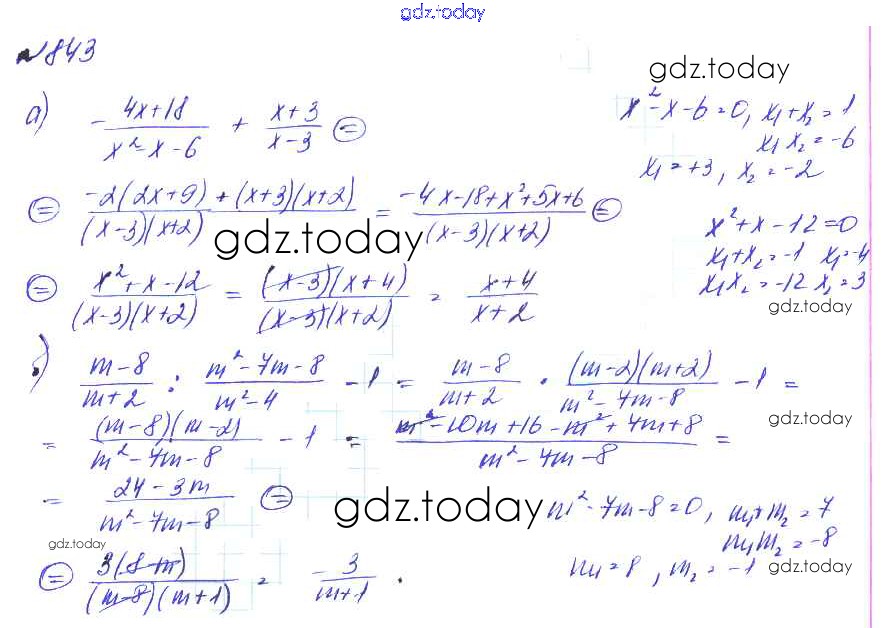 gdz.today
№843
gdz.today
а) -(4x+18)/(x²-x-6) + (x+3)/(x-3) ⊜
x²-x-6=0, x₁+x₂=1
x₁x₂=-6
x₁=+3, x₂=-2
⊜ (-2(2x+9)+(x+3)(x+2))/((x-3)(x+2)) = (-4x-18+x²+5x+6)/((x-3)(x+2)) ⊜
gdz.today
x²+x-12=0
x₁+x₂=-1 x₁=-4
x₁x₂=-12 x₂=3
gdz.today
⊜ (x²+x-12)/((x-3)(x+2)) = ((x-3)(x+4))/((x-3)(x+2)) = (x+4)/(x+2)
б) (m-8)/(m+2) : (m²-7m-8)/(m²-4) - 1 = (m-8)/(m+2) · ((m-2)(m+2))/(m²-7m-8) - 1 =
gdz.today
= ((m-8)(m-2))/(m²-7m-8) - 1 = (m²-10m+16-m²+7m+8)/(m²-7m-8) =
= (24-3m)/(m²-7m-8) ⊜
gdz.today
m²-7m-8=0, m₁+m₂=7
m₁m₂=-8
m₁=8, m₂=-1
gdz.today
gdz.today
⊜ (3(8-m))/((m-8)(m+1)) = -3/(m+1).